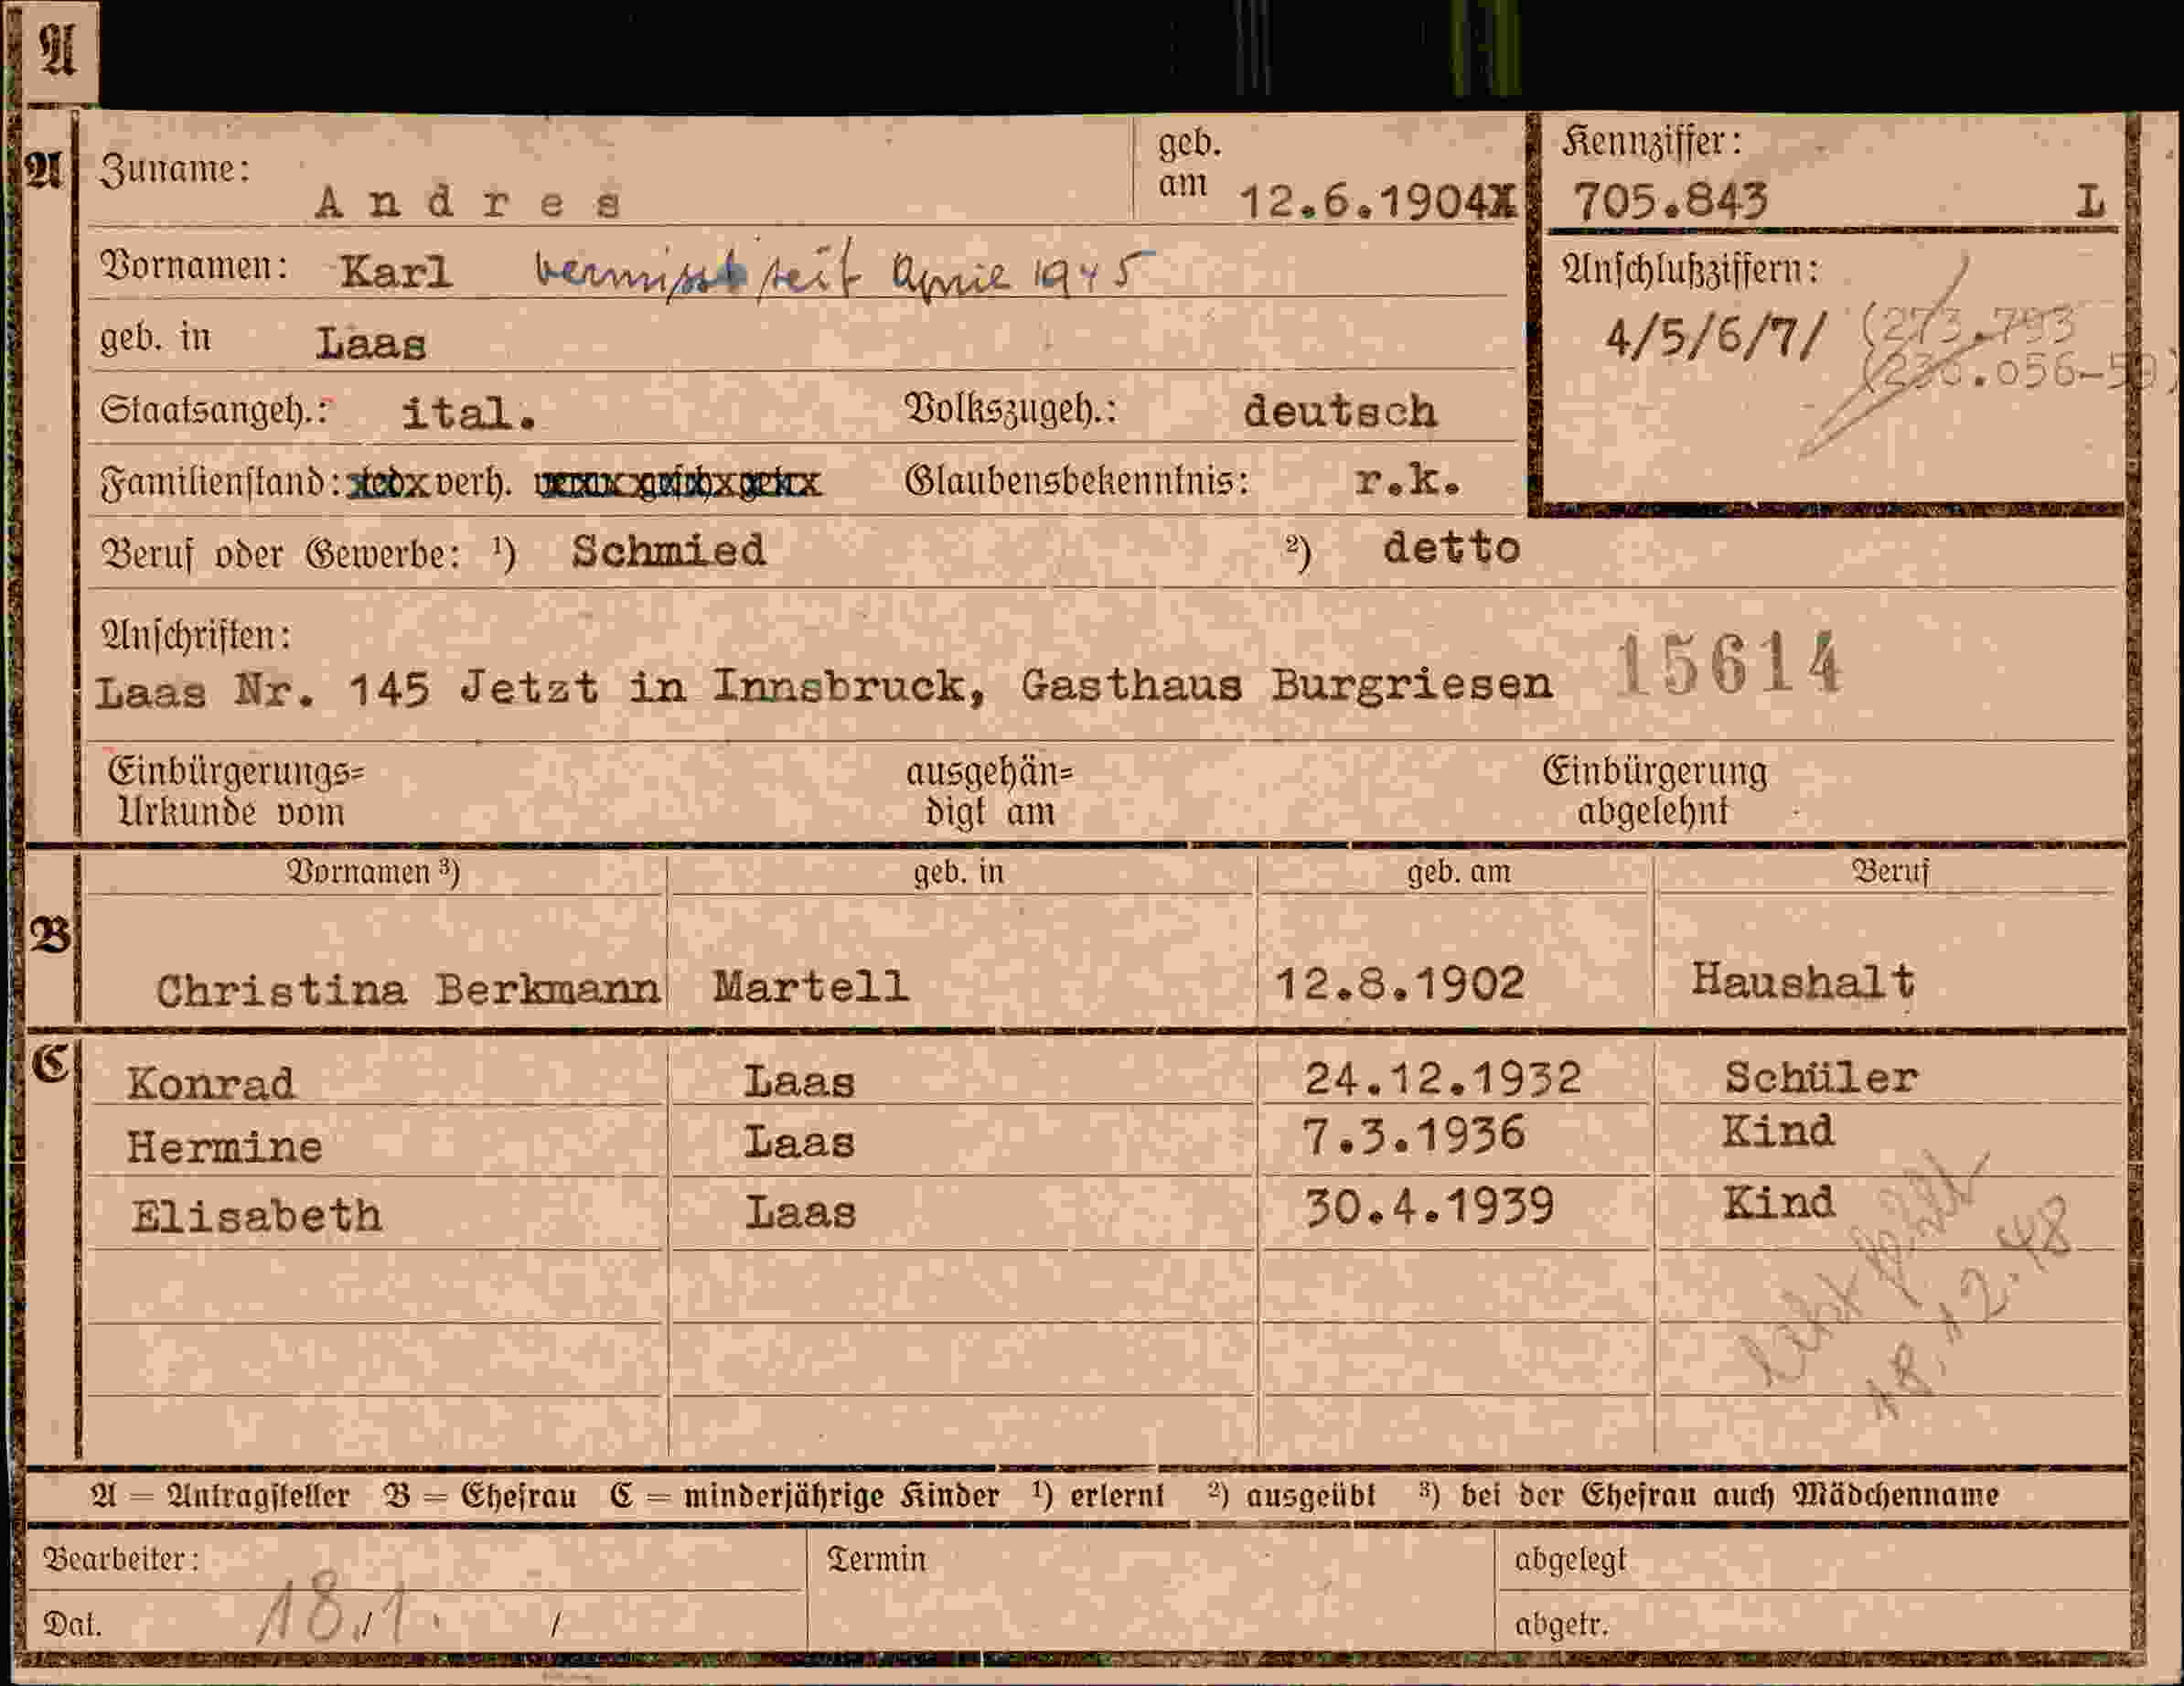 A
A
Zuname: Andres geb. am 12.6.1904
Kennziffer: 705.843 L
Vornamen: Karl vermisst seit April 1945
Anschlußziffern:
4/5/6/7/ (273.793
.056-
geb. in Laas
Staatsangeh.: ital. Volkszugeh.: deutsch
Familienstand: verh. Glaubensbekenntnis: r.k.
Beruf oder Gewerbe: 1) Schmied 2) detto
Anschriften:
Laas Nr. 145 Jetzt in Innsbruck, Gasthaus Burgriesen 15614
Einbürgerungs= ausgehän= Einbürgerung
Urkunde vom digt am abgelehnt
Vornamen 3) geb. in geb. am Beruf
B
Christina Berkmann Martell 12.8.1902 Haushalt
C
Konrad Laas 24.12.1932 Schüler
Hermine Laas 7.3.1936 Kind
Elisabeth Laas 30.4.1939 Kind
18.12.48
A = Antragsteller B = Ehefrau C = minderjährige Kinder 1) erlernt 2) ausgeübt 3) bei der Ehefrau auch Mädchenname
Bearbeiter: Termin abgelegt
Dat. 18./1. / abgetr.